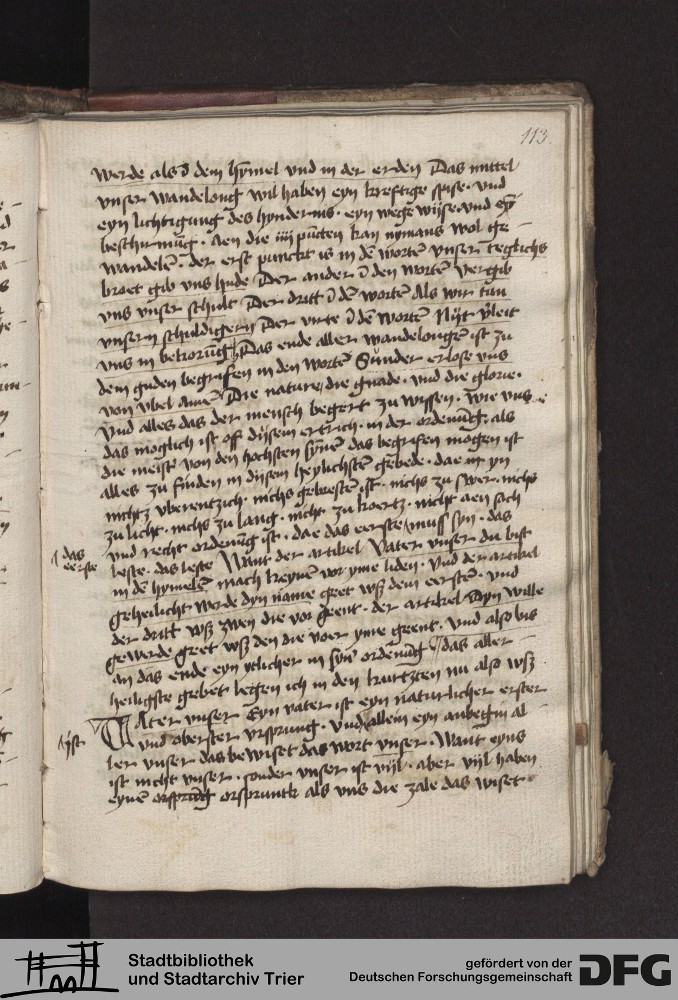 113
werde als ī dem hȳmel vnd in der erden Das mittel
vnser wandelong wil haben eyn kreftige spise · vnd
eyn lichtigung des hynderniß · eyn wege wijse · vnd eyn
beschirmūg · Aen die iiij pūcten kan nymans wol ge
wandelē · der erst punckt is in dē wortē vnser teglichs
broet gib vns hude Der ander ī den wortē vergib
vns vnser schult Der dritt ī dē wortē Als wir tun
vnsern schuldigern Der virte ī dē wortē Nijt v̄leit
vns in bekorūg Das ende aller wandelongē ist zu
dem guden begrifen in den wortē Sunder erlose vns
von vbel amē Die nature / die gnade · vnd die glorie ·
Vnd alles das der mensch begert zu wissen · wie vns
das moglich ist off dysem ertrich · in der ordenūg · als
die meist von den hochsten synnē das begrifen mogen ist
alles zu finden in dijsem heylichstē gebede · dae in yn
nichtz vberentzich · nichs gebrestē ist · nichs zu swer · nichs
zu licht · nichs zu lang · nicht zu koertz · nicht aen sach
vnd recht ordenūg ist · dae das eerste / muß syn · das
das eerste
leste · das leste Want der artikel Vater vnser du bist
in dē hymelē mach keynen vor yme liden · Vnd der artikel
geheilicht werde dyn name geet vß dem eerstē · vnd
der dritt vß zwen die vor geent · der artikel Dyn wille
gewerde geet vß den die voer yme geent · Vnd also bis
an das ende eyn ytlicher in synē ordenūg das aller
heiligste gebet legen ich in den kurtzten nu also vß
VAter vnser Eyn vater ist eyn naturlicher erster
vnd oberster vrsprung · Vnd allein eyn anbegin al
ler vnser das bewiset das wort vnser · Want eyns
ist nicht vnser · sonder vnser ist vijl · aber vijl haben
eynē orsprūg orspruntk als vns die zale das wiset
Stadtbibliothek
und Stadtarchiv Trier
gefördert von der
Deutschen Forschungsgemeinschaft
DFG